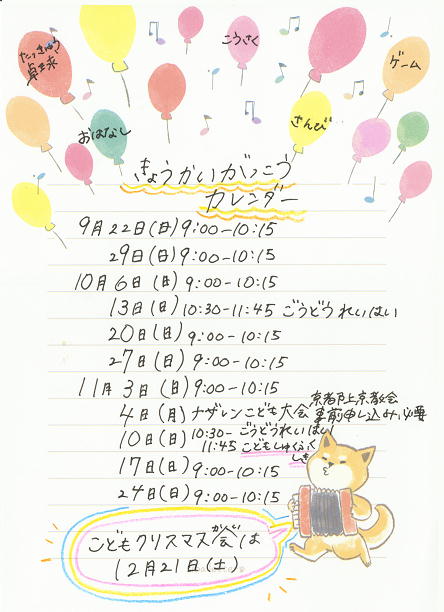 たっきゅう
卓球
こうさく
ゲーム
おはなし
さんび
きょうかいがっこう
カレンダー
9月22日(日)9:00-10:15
29日(日)9:00-10:15
10月6日(日)9:00-10:15
13日(日)10:30-11:45 ごうどうれいはい
20日(日)9:00-10:15
27日(日)9:00-10:15
11月3日(日)9:00-10:15
京都市上京教会
4日(月)ナザレンこども大会 事前申し込み必要
10日(日)10:30- ごうどうれいはい
11:45 こどもしゅくふく
しき
17日(日)9:00-10:15
24日(日)9:00-10:15
かい
こどもクリスマス会は
12月21日(土)